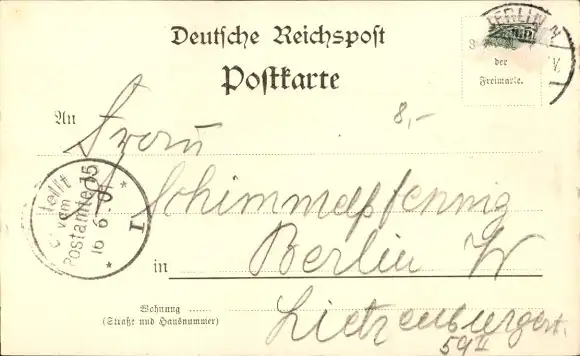 Deutsche Reichspost
Postkarte
BERLIN
der
Freimarke.
8,-
An
Frau
Schimmelpfennig
in Berlin W
Wohnung
(Straße und Hausnummer)
Lietzenburgerst.
59 II
Best
vom
Postamte 15
16 6 01
I